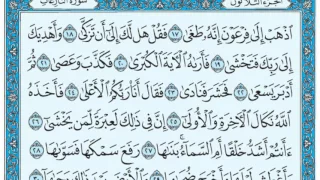 الجزء الثلاثون سورة النازعات
ٱذْهَبْ إِلَىٰ فِرْعَوْنَ إِنَّهُۥ طَغَىٰ ١٧ فَقُلْ هَل لَّكَ إِلَىٰٓ أَن تَزَكَّىٰ ١٨ وَأَهْدِيَكَ
إِلَىٰ رَبِّكَ فَتَخْشَىٰ ١٩ فَأَرَىٰهُ ٱلْـَٔايَةَ ٱلْكُبْرَىٰ ٢٠ فَكَذَّبَ وَعَصَىٰ ٢١ ثُمَّ
أَدْبَرَ يَسْعَىٰ ٢٢ فَحَشَرَ فَنَادَىٰ ٢٣ فَقَالَ أَنَا۠ رَبُّكُمُ ٱلْأَعْلَىٰ ٢٤ فَأَخَذَهُ
ٱللَّهُ نَكَالَ ٱلْـَٔاخِرَةِ وَٱلْأُولَىٰٓ ٢٥ إِنَّ فِى ذَٰلِكَ لَعِبْرَةً لِّمَن يَخْشَىٰٓ ٢٦
ءَأَنتُمْ أَشَدُّ خَلْقًا أَمِ ٱلسَّمَآءُ ۚ بَنَىٰهَا ٢٧ رَفَعَ سَمْكَهَا فَسَوَّىٰهَا ٢٨